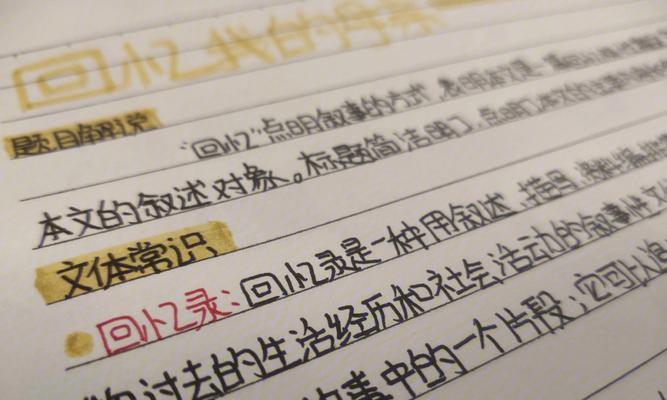 回忆我的母亲
题目解说
"回忆"点明叙事的方式,表明本文是一篇回忆
本文的叙述对象。标题简洁明了,点明了本文的主要
文体常识
回忆录:回忆录是一种用叙述、描写
过去的生活经历和社会活动的叙事性文
故事中的一个片段;它可以